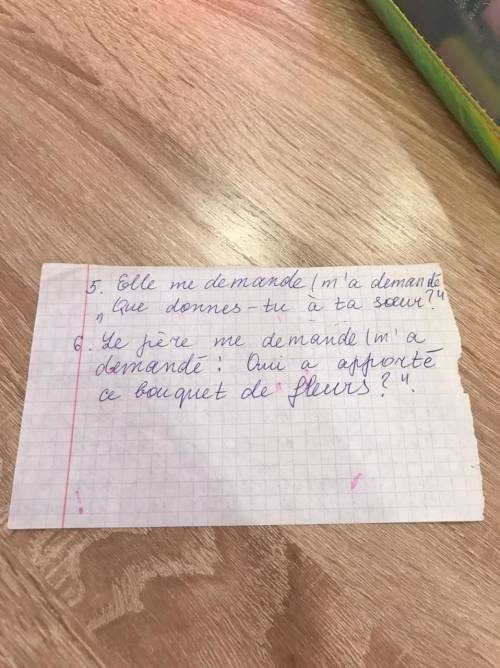 5. Elle me demande / m'a demandé
„Que donnes-tu à ta sœur?"
6. Le père me demande / m'a
demandé: Qui a apporté
ce bouquet de fleurs?".